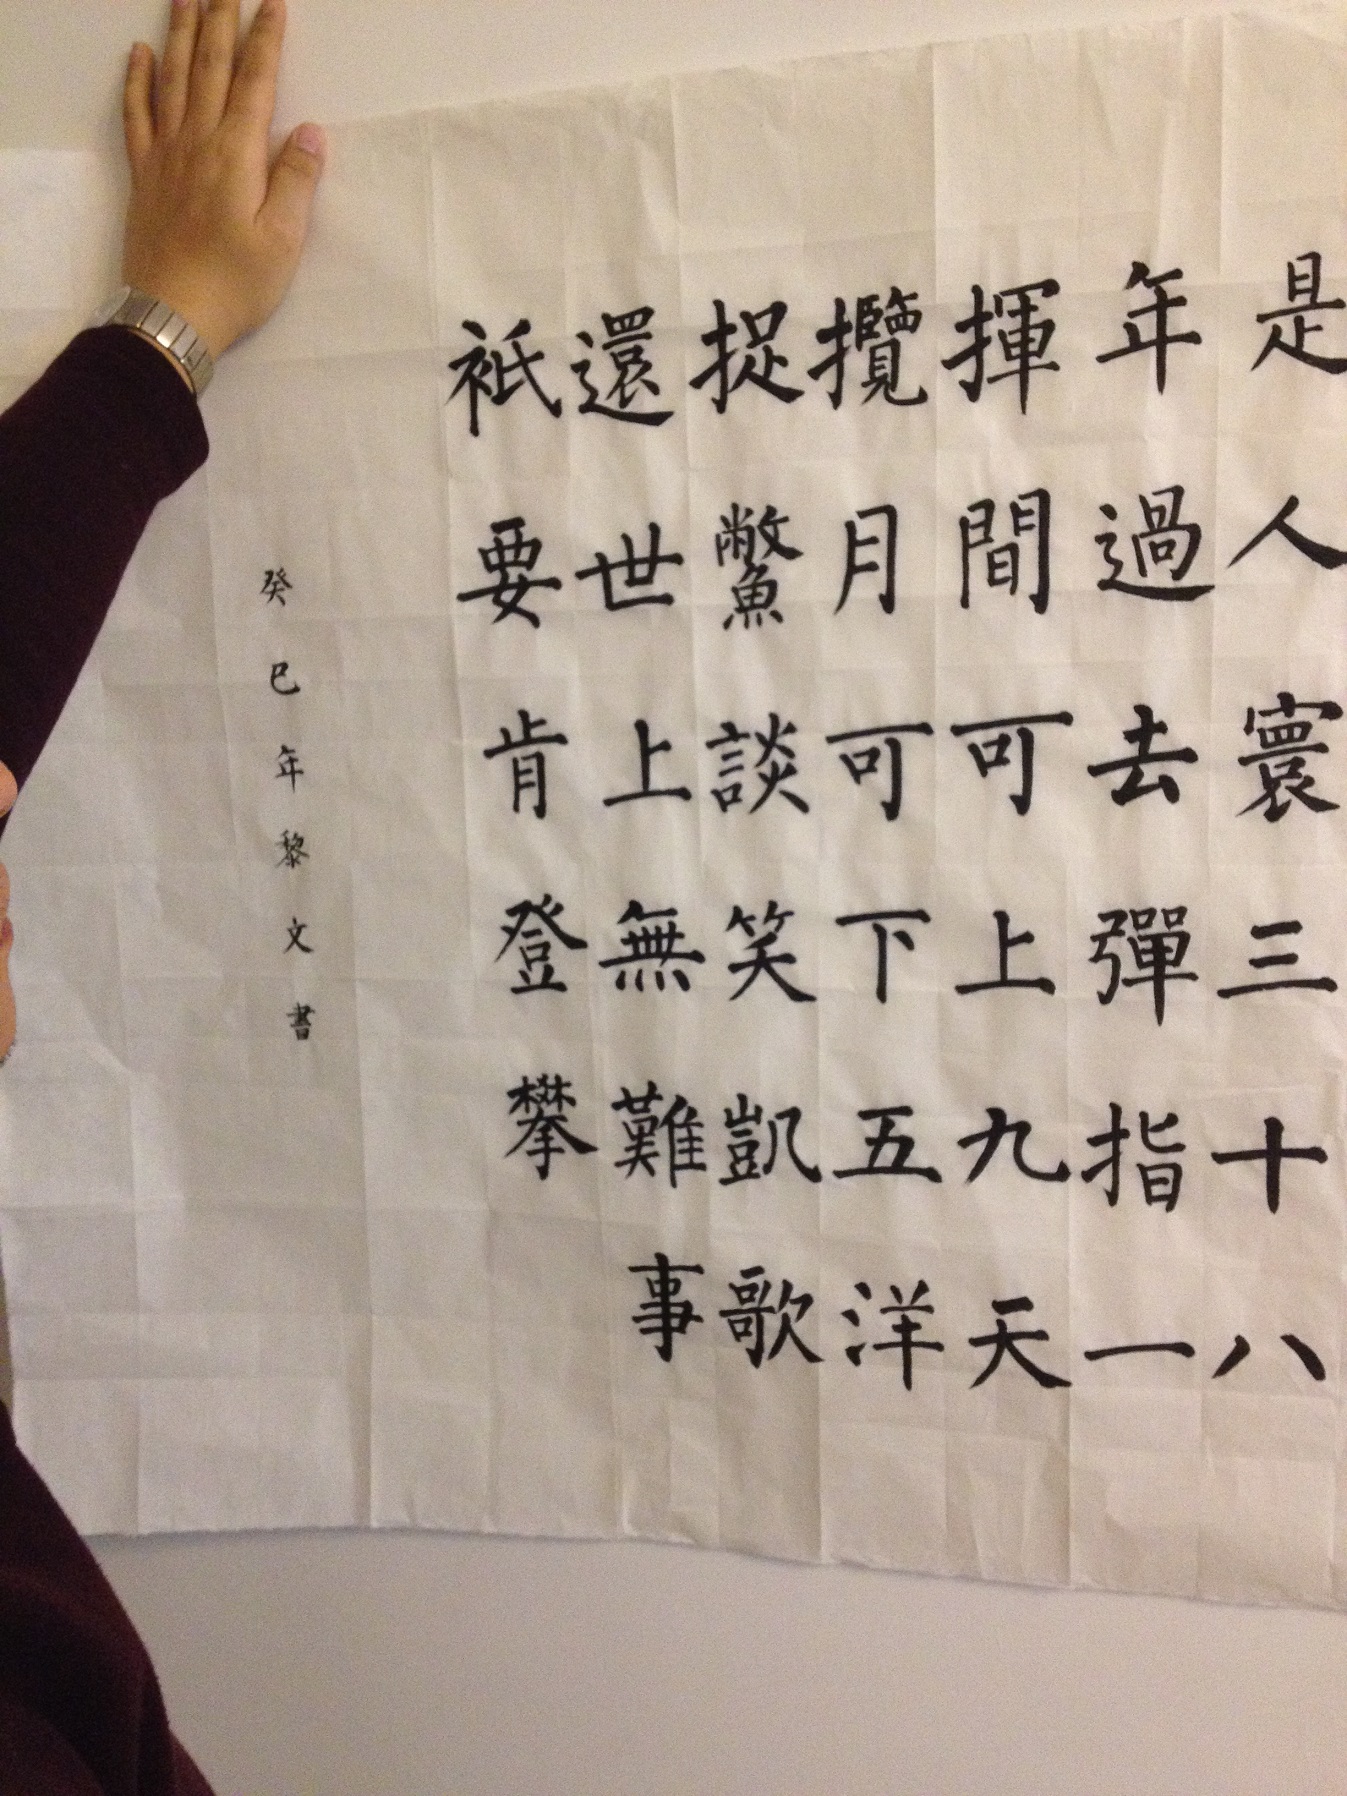 是人寰三十八
年過去彈指一
揮間可上九天
攬月可下五洋
捉鱉談笑凱歌
還世上無難事
祇要肯登攀
癸巳年黎文書